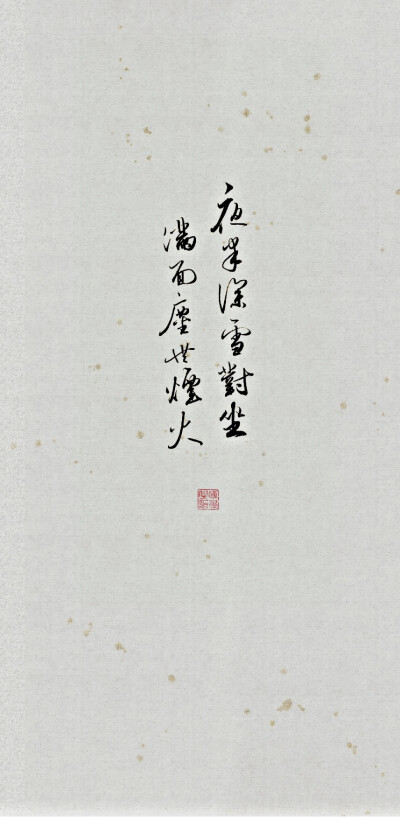 夜半深雪對坐
滿面塵世煙火